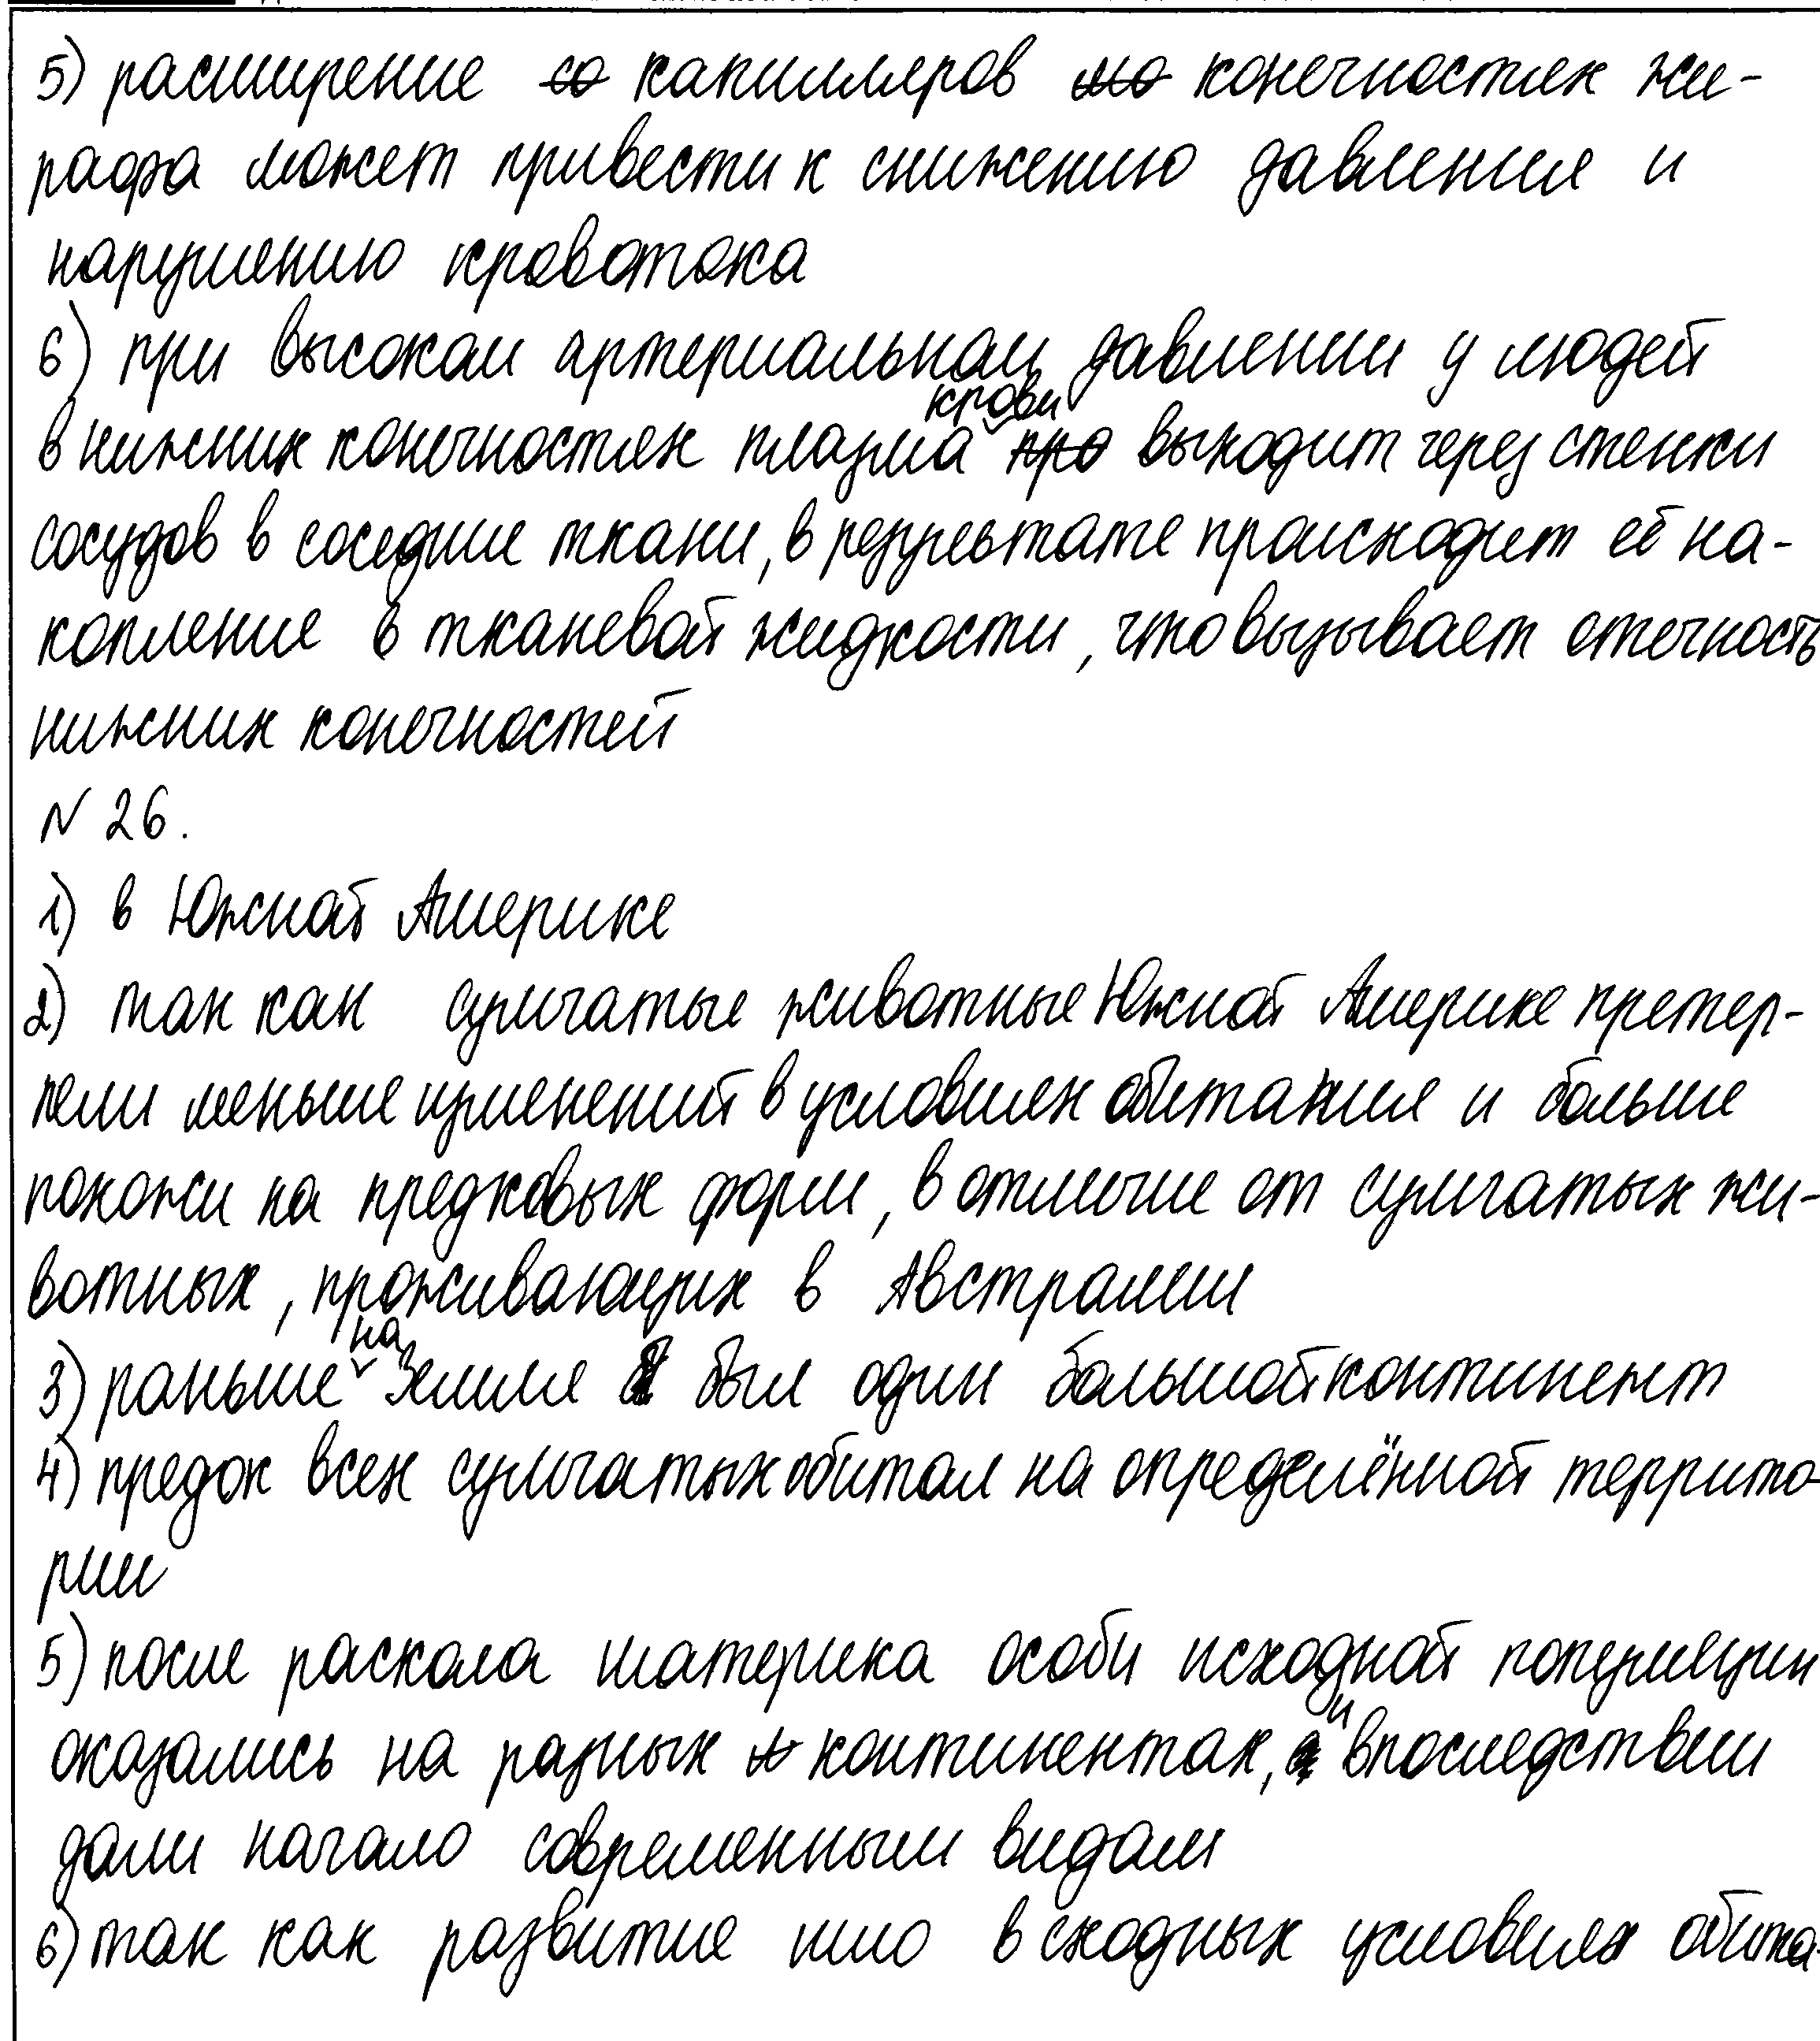 5) расширение со капилляров мо конечностях жи-
рафа может привести к снижению давления и
нарушению кровотока
6) при высоком артериальном давлении у людей
в нижних конечностях плазма крови про выходит через стенки
сосудов в соседние ткани, в результате происходит её на-
копление в тканевой жидкости, что вызывает отечность
нижних конечностей
№ 26.
1) в Южной Америке
2) так как сумчатые животные Южной Америке претер-
пели меньше изменений в условиях обитания и больше
похожи на предковых форм, в отличие от сумчатых жи-
вотных, проживающих в Австралии
3) раньше на Земле был один большой континент
4) предок всех сумчатых обитал на определённой террито-
рии
5) после раскола материка особи исходной популяции
оказались на разных континентах, и впоследствии
дали начало современным видам
6) так как развитие шло в сходных условиях обита-